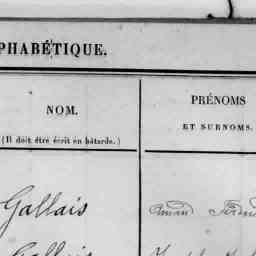 PHABÉTIQUE.
NOM.
(Il doit être écrit en bâtarde.)
PRÉNOMS
ET SURNOMS.
Gallais
Gallais